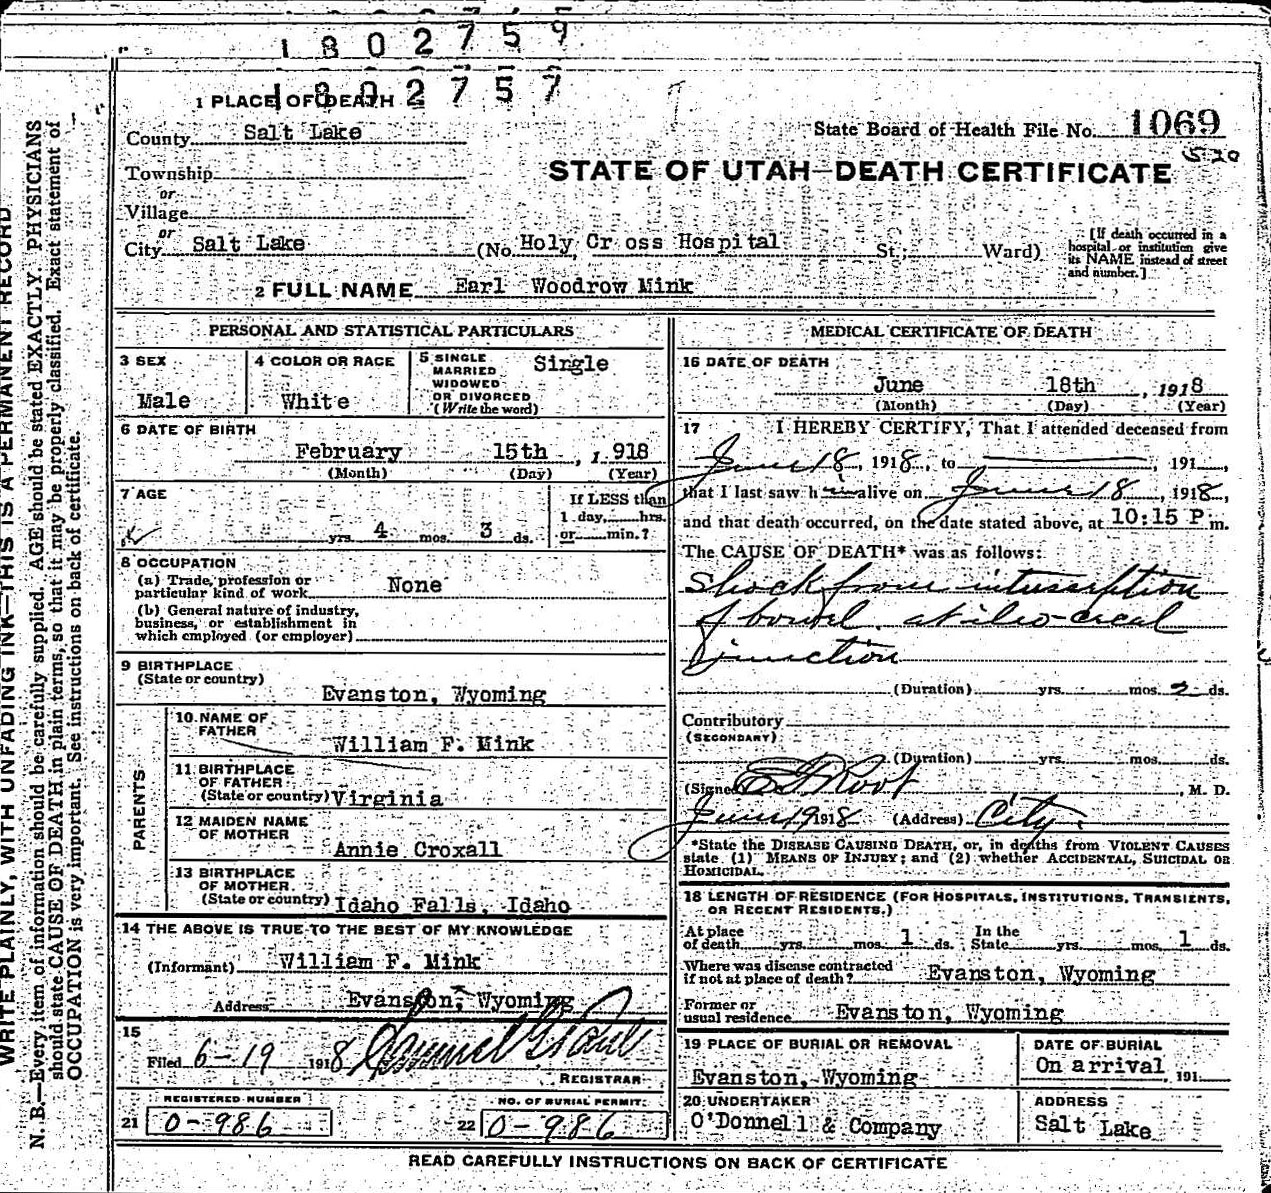 1802759
1802757
1 PLACE OF DEATH
County Salt Lake
State Board of Health File No. 1069
520
Township
STATE OF UTAH—DEATH CERTIFICATE
or
Village
or
City Salt Lake (No. Holy Cross Hospital St.; Ward)
[If death occurred in a
hospital or institution give
its NAME instead of street
and number.]
2 FULL NAME Earl Woodrow Mink
PERSONAL AND STATISTICAL PARTICULARS
3 SEX
Male
4 COLOR OR RACE
White
5 SINGLE
MARRIED
WIDOWED
OR DIVORCED
(Write the word)
Single
6 DATE OF BIRTH
February 15th, 1918
(Month) (Day) (Year)
7 AGE
yrs. 4 mos. 3 ds.
If LESS than
1 day, hrs.
or min.?
8 OCCUPATION
(a) Trade, profession or
particular kind of work None
(b) General nature of industry,
business, or establishment in
which employed (or employer)
9 BIRTHPLACE
(State or country)
Evanston, Wyoming
PARENTS
10 NAME OF
FATHER
William F. Mink
11 BIRTHPLACE
OF FATHER
(State or country) Virginia
12 MAIDEN NAME
OF MOTHER
Annie Croxall
13 BIRTHPLACE
OF MOTHER
(State or country) Idaho Falls, Idaho
14 THE ABOVE IS TRUE TO THE BEST OF MY KNOWLEDGE
(Informant) William F. Mink
Address Evanston, Wyoming
15
Filed 6-19 1918
REGISTRAR
REGISTERED NUMBER
21 0-986
NO. OF BURIAL PERMIT
22 0-986
MEDICAL CERTIFICATE OF DEATH
16 DATE OF DEATH
June 18th, 1918
(Month) (Day) (Year)
17 I HEREBY CERTIFY, That I attended deceased from
June 18, 1918, to , 191 ,
that I last saw him alive on June 18, 1918,
and that death occurred, on the date stated above, at 10:15 P m.
The CAUSE OF DEATH* was as follows:
Shock from intussusception
of bowel at ileo-cecal
junction
(Duration) yrs. mos. 2 ds.
Contributory
(SECONDARY)
(Duration) yrs. mos. ds.
(Signed) Root, M. D.
June 19 1918 (Address) City.
*State the DISEASE CAUSING DEATH, or, in deaths from VIOLENT CAUSES
state (1) MEANS OF INJURY; and (2) whether ACCIDENTAL, SUICIDAL OR
HOMICIDAL.
18 LENGTH OF RESIDENCE (FOR HOSPITALS, INSTITUTIONS, TRANSIENTS,
OR RECENT RESIDENTS.)
At place In the
of death yrs. mos. 1 ds. State yrs. mos. 1 ds.
Where was disease contracted
if not at place of death? Evanston, Wyoming
Former or
usual residence Evanston, Wyoming
19 PLACE OF BURIAL OR REMOVAL
Evanston, Wyoming
DATE OF BURIAL
On arrival, 191
20 UNDERTAKER
O'Donnell & Company
ADDRESS
Salt Lake
READ CAREFULLY INSTRUCTIONS ON BACK OF CERTIFICATE
WRITE PLAINLY, WITH UNFADING INK—THIS IS A PERMANENT RECORD
N. B.—Every item of information should be carefully supplied. AGE should be stated EXACTLY. PHYSICIANS
should state CAUSE OF DEATH in plain terms, so that it may be properly classified. Exact statement of
OCCUPATION is very important. See instructions on back of certificate.